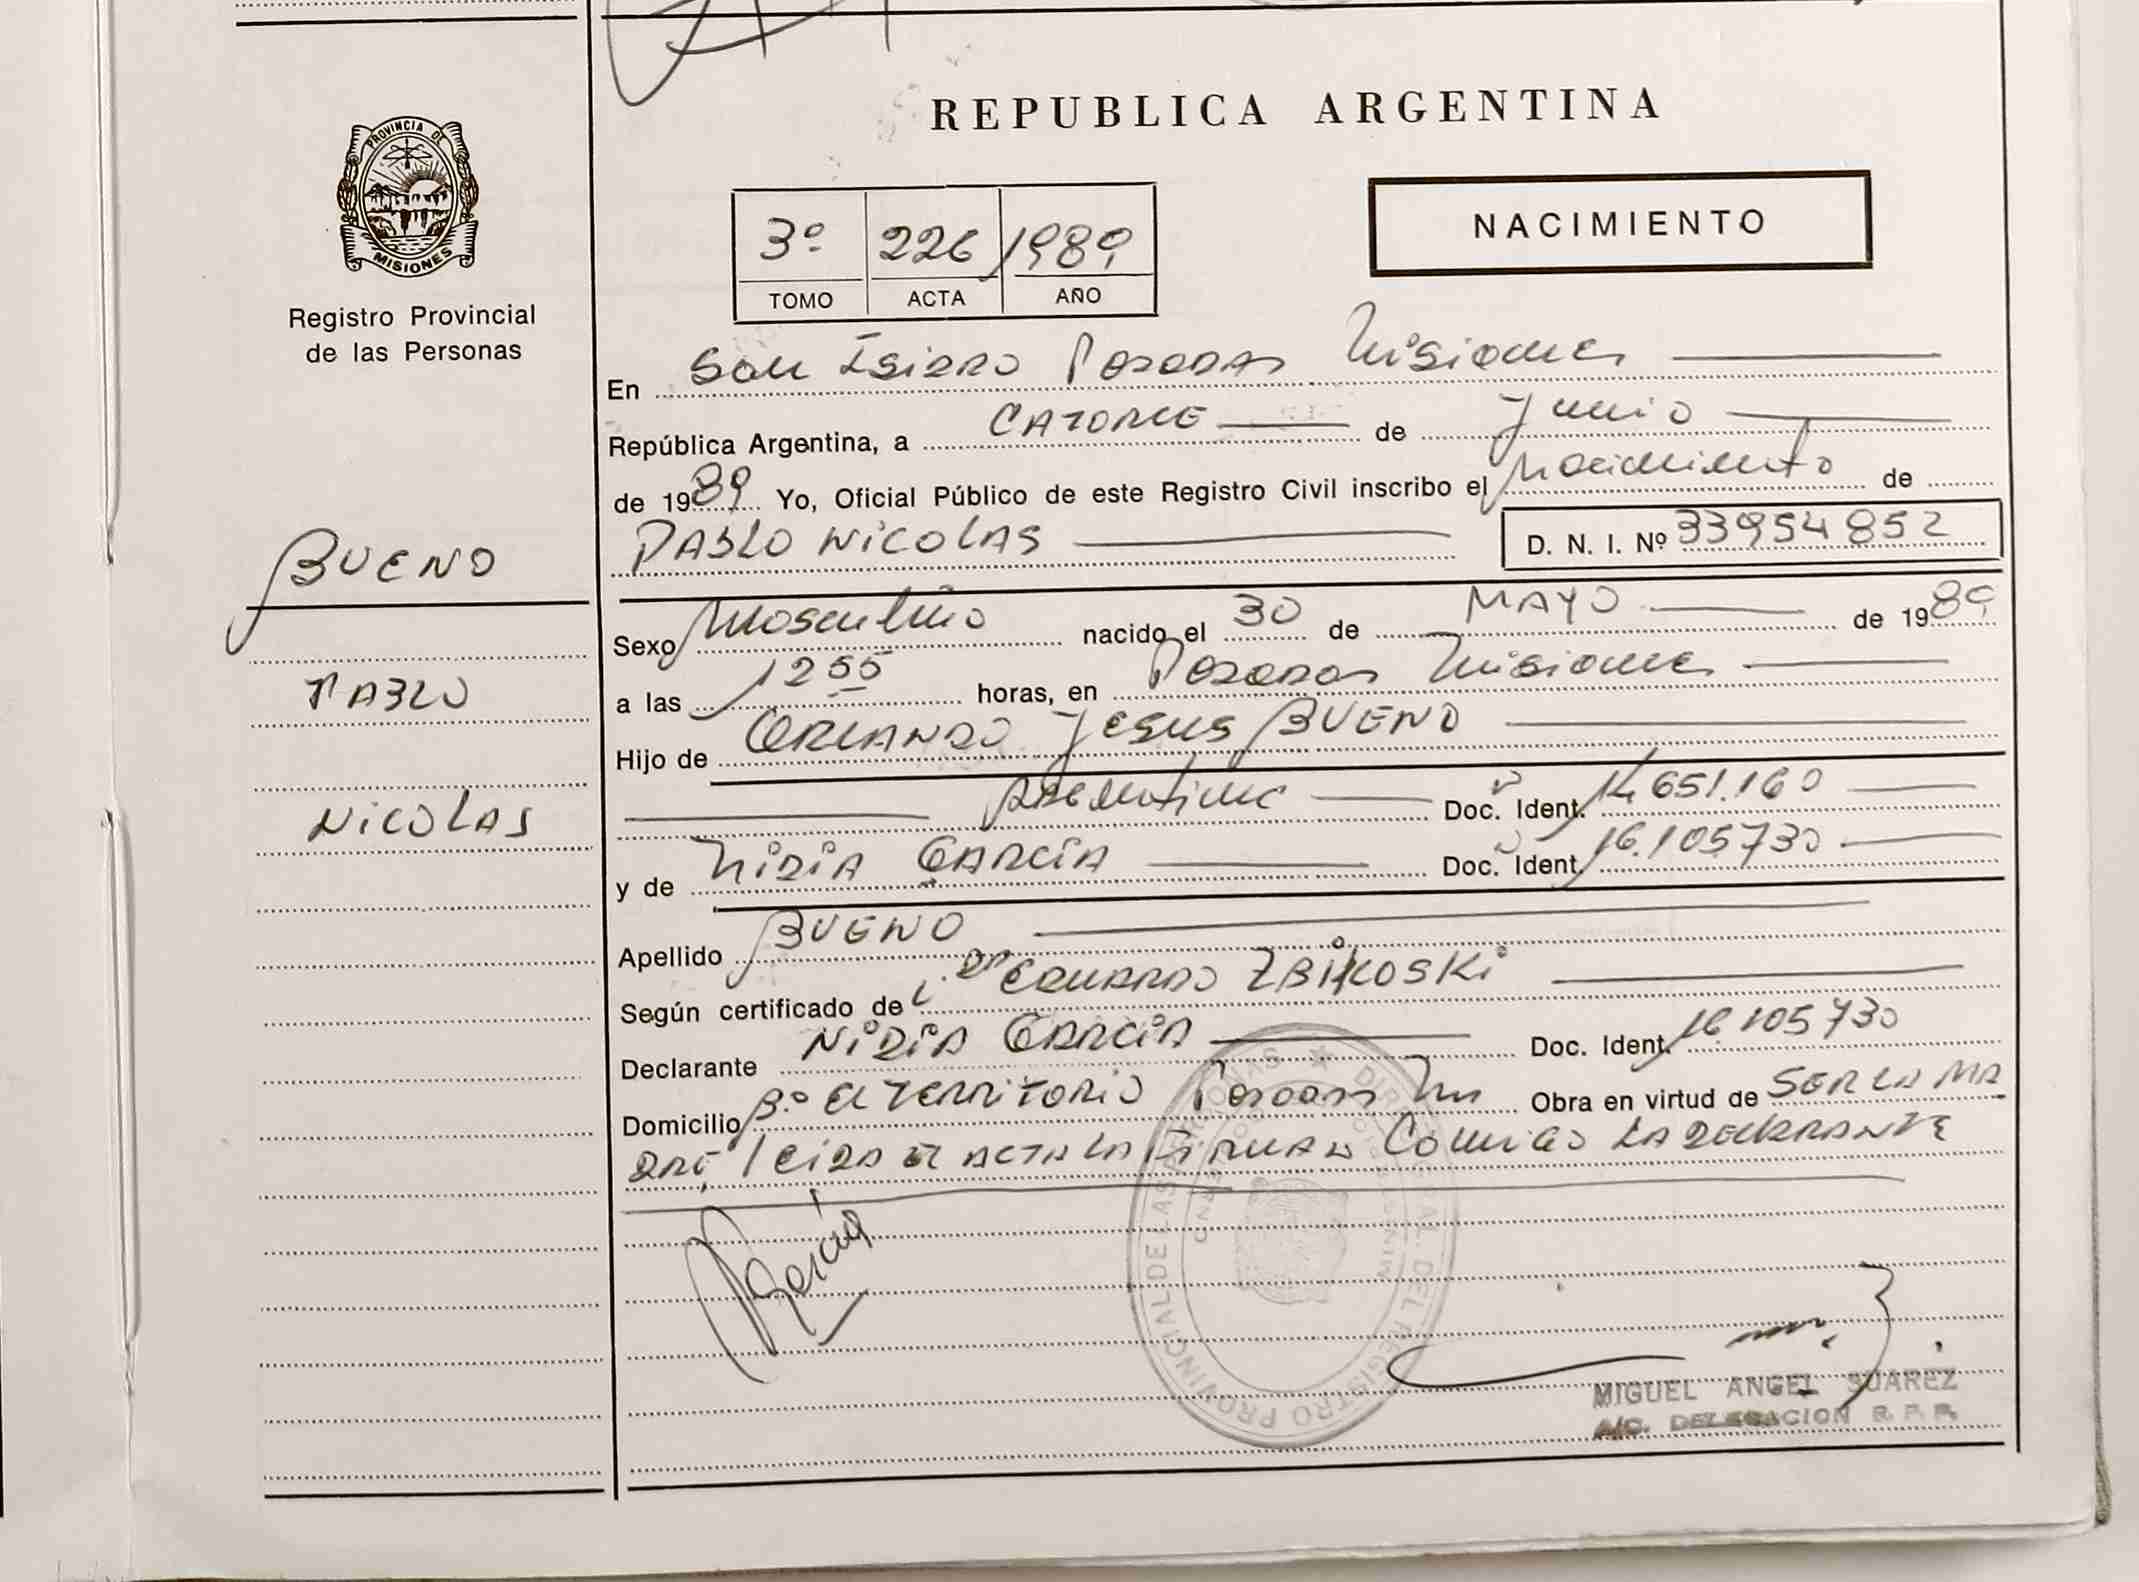 PROVINCIA DE
MISIONES
Registro Provincial
de las Personas
BUENO
PABLO
NICOLAS
REPUBLICA ARGENTINA
NACIMIENTO
3º 226 1989
TOMO ACTA AÑO
En San Isidro Posadas Misiones
República Argentina, a CATORCE de Junio
de 1989 Yo, Oficial Público de este Registro Civil inscribo el Nacimiento de
PABLO NICOLAS D. N. I. Nº 33954852
Sexo Masculino nacido el 30 de MAYO de 1989
a las 1255 horas, en Posadas Misiones
Hijo de ORLANDO JESUS BUENO
Argentino Doc. Ident. 14.651.160
y de NIDIA GARCIA Doc. Ident. 16.105730
Apellido BUENO
Según certificado de Dr EDUARDO ZBIKOSKI
Declarante NIDIA GARCIA Doc. Ident. 16.105730
Domicilio Bº El TERRITORIO Posadas Mn Obra en virtud de SER LA MA
DRE, leida el ACTA LA FIRMAN Conmigo LA DECLARANTE
García
DIRECCION GRAL. DEL REGISTRO PROVINCIAL DE LAS PERSONAS
MIGUEL ANGEL SUAREZ
A/C. DELEGACION R. P. P.